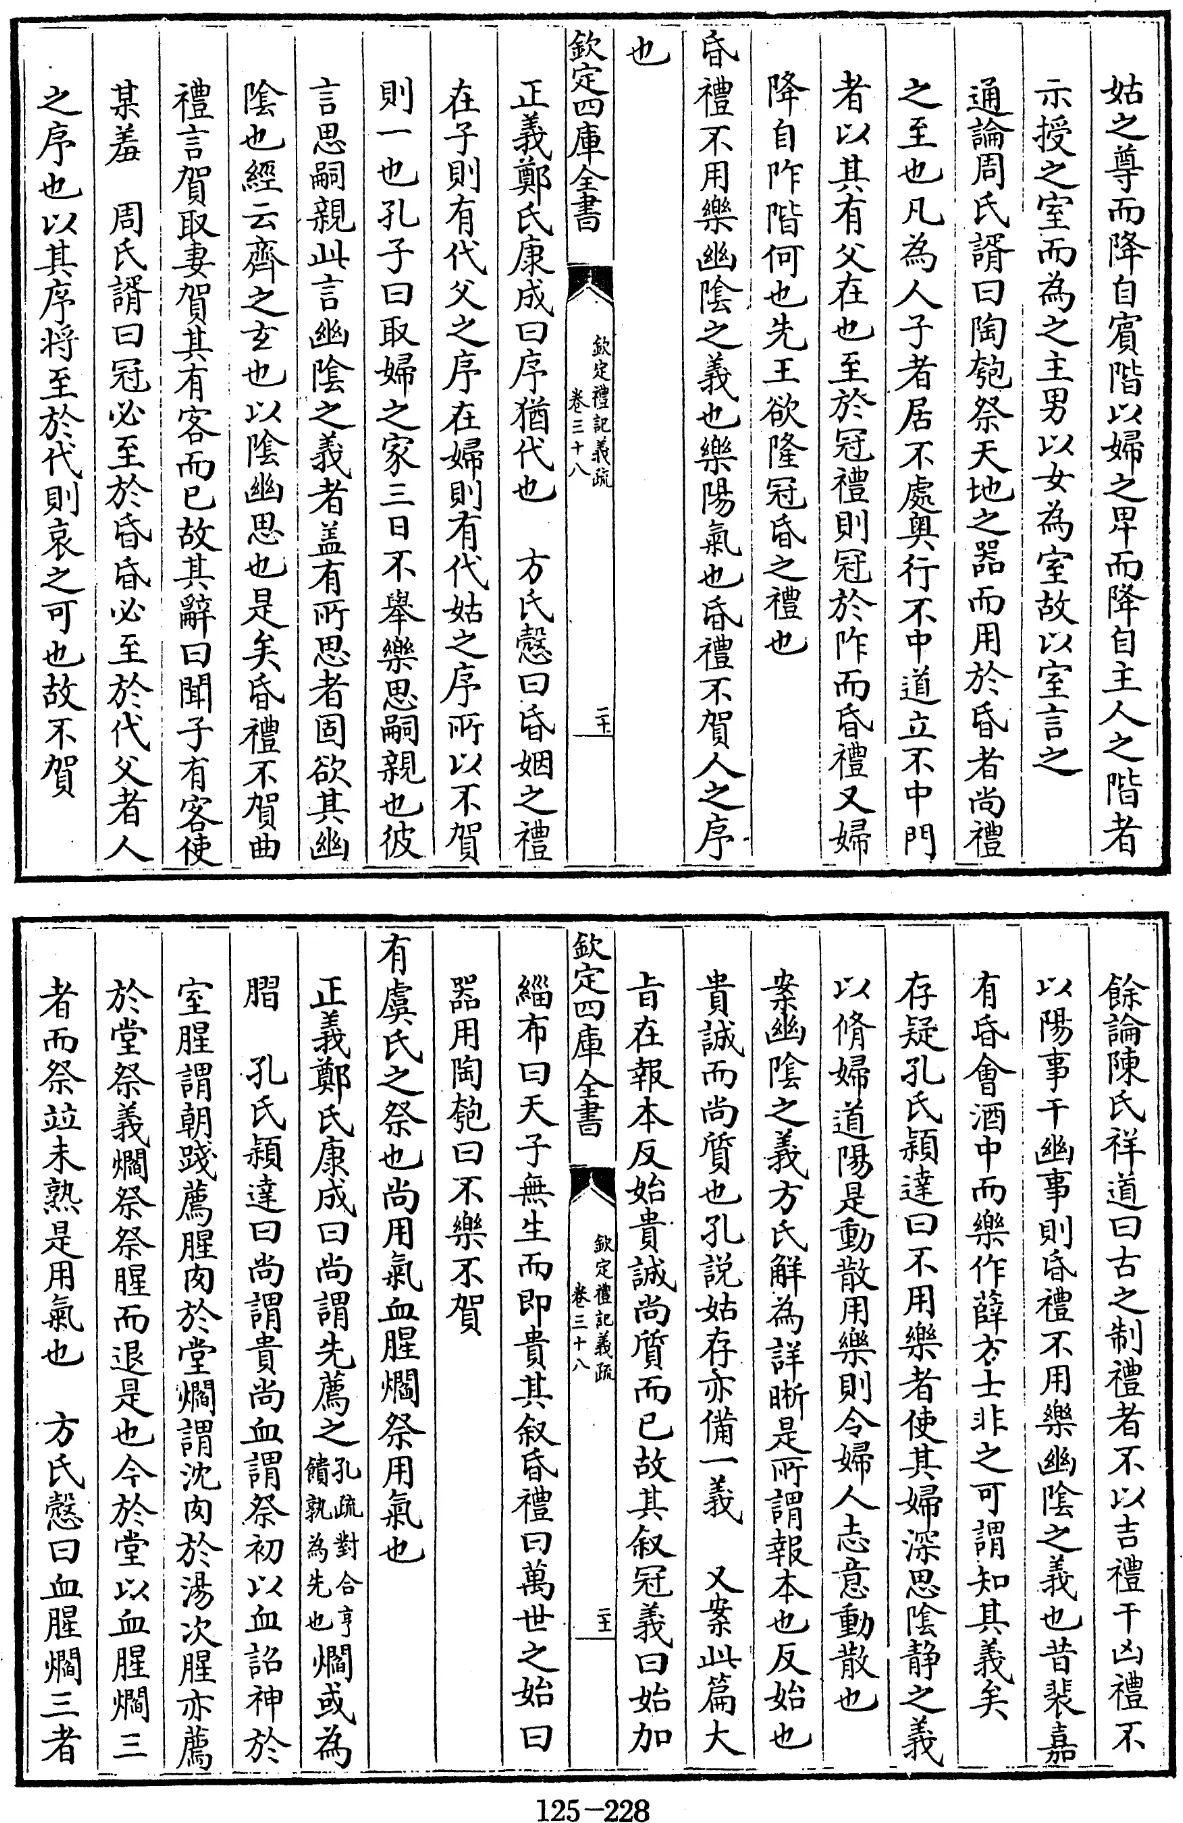 姑之尊而降自賓階以婦之卑而降自主人之階者
示授之室而為之主男以女為室故以室言之
通論周氏諝曰陶匏祭天地之器而用於昏者尚禮
之至也凡為人子者居不處奧行不中道立不中門
者以其有父在也至於冠禮則冠於阼而昏禮又婦
降自阼階何也先王欲隆冠昏之禮也
昏禮不用樂幽陰之義也樂陽氣也昏禮不賀人之序
也
欽定四庫全書
欽定禮記義疏
卷三十八
二十
正義鄭氏康成曰序猶代也　方氏慤曰昏姻之禮
在子則有代父之序在婦則有代姑之序所以不賀
則一也孔子曰取婦之家三日不舉樂思嗣親也彼
言思嗣親此言幽陰之義者盖有所思者固欲其幽
陰也經云齊之玄也以陰幽思也是矣昏禮不賀曲
禮言賀取妻賀其有客而已故其辭曰聞子有客使
某羞　周氏諝曰冠必至於昏昏必至於代父者人
之序也以其序將至於代則哀之可也故不賀
餘論陳氏祥道曰古之制禮者不以吉禮干凶禮不
以陽事干幽事則昏禮不用樂幽陰之義也昔裴嘉
有昏會酒中而樂作薛方士非之可謂知其義矣
存疑孔氏穎達曰不用樂者使其婦深思陰靜之義
以脩婦道陽是動散用樂則令婦人志意動散也
案幽陰之義方氏解為詳晰是所謂報本也反始也
貴誠而尚質也孔說姑存亦備一義　又案此篇大
旨在報本反始貴誠尚質而已故其叙冠義曰始加
欽定四庫全書
欽定禮記義疏
卷三十八
二十一
緇布曰天子無生而即貴其叙昏禮曰萬世之始曰
器用陶匏曰不樂不賀
有虞氏之祭也尚用氣血腥爓祭用氣也
正義鄭氏康成曰尚謂先薦之孔疏對合亨饋孰為先也爓或為
腤　孔氏穎達曰尚謂貴尚血謂祭初以血詔神於
室腥謂朝踐薦腥肉於堂爓謂沈肉於湯次腥亦薦
於堂祭義爓祭祭腥而退是也今於堂以血腥爓三
者而祭竝未熟是用氣也　方氏慤曰血腥爓三者
125-228